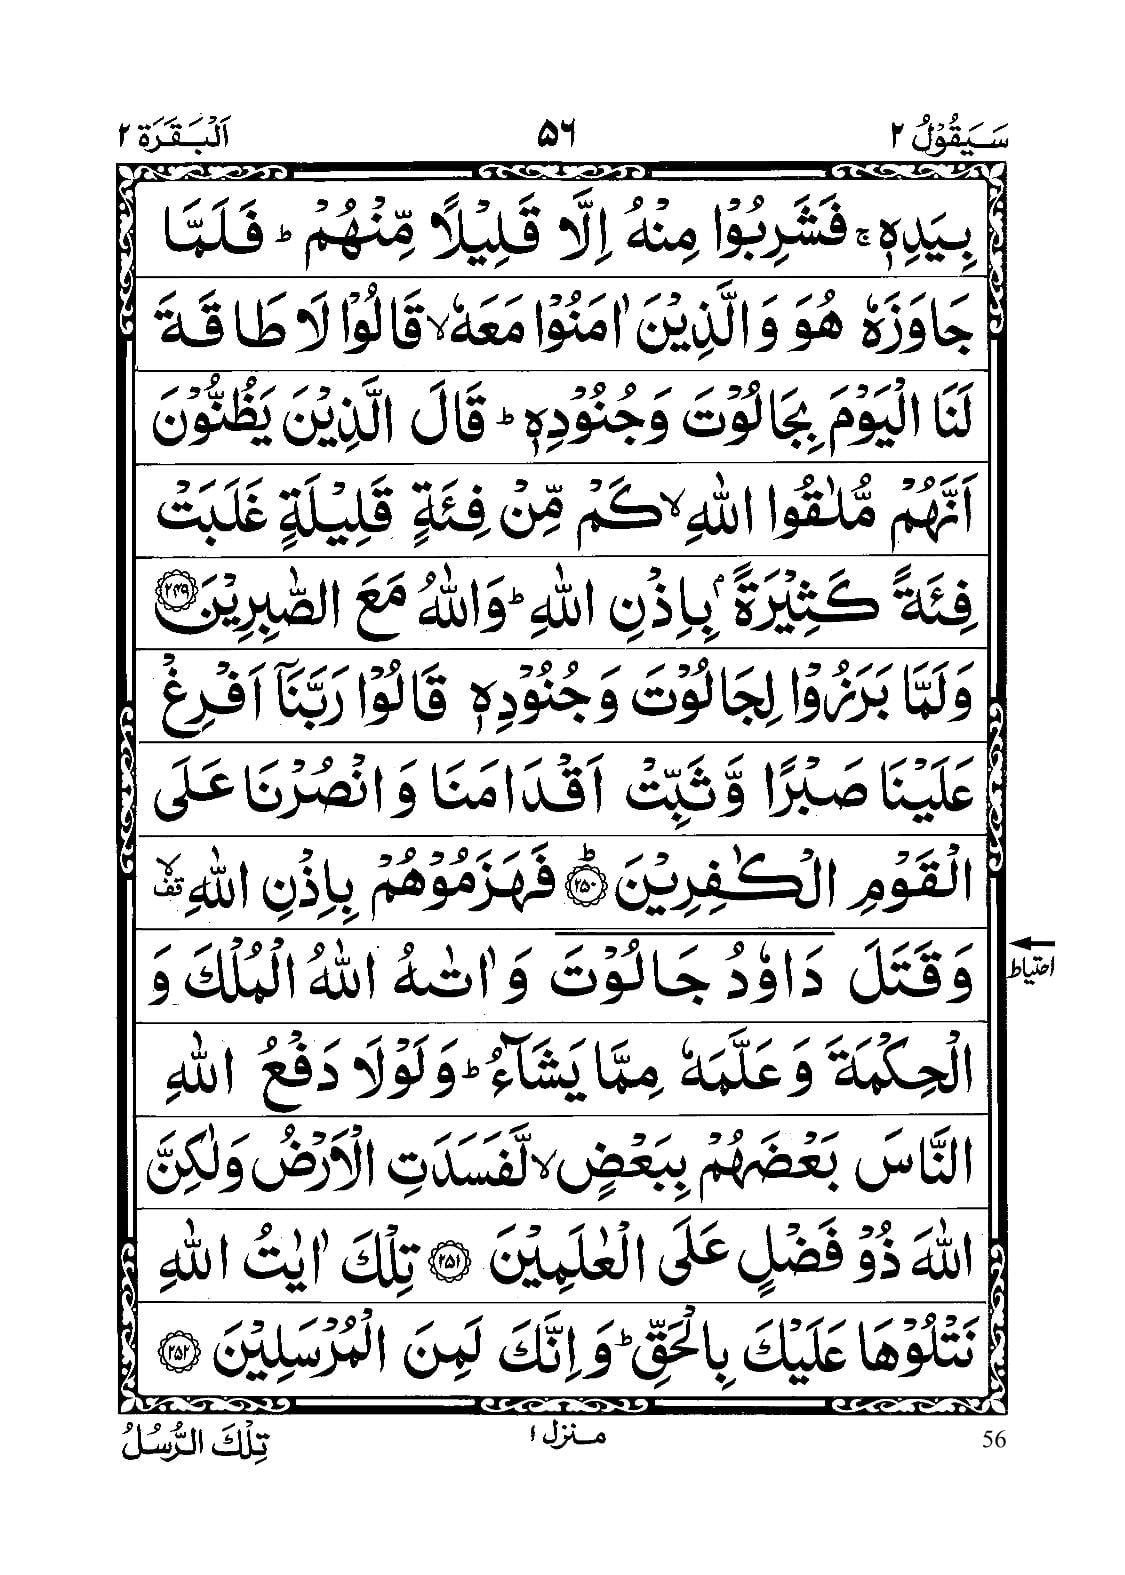 سَيَقُوْلُ ٢ ٥٦ اَلْبَقَرَة ٢
بِيَدِهٖ ۚ فَشَرِبُوْا مِنْهُ اِلَّا قَلِيْلًا مِّنْهُمْ ؕ فَلَمَّا
جَاوَزَهٗ هُوَ وَالَّذِيْنَ اٰمَنُوْا مَعَهٗ ۙ قَالُوْا لَا طَاقَةَ
لَنَا الْيَوْمَ بِجَالُوْتَ وَجُنُوْدِهٖ ؕ قَالَ الَّذِيْنَ يَظُنُّوْنَ
اَنَّهُمْ مُّلٰقُوا اللّٰهِ ۙ كَمْ مِّنْ فِئَةٍ قَلِيْلَةٍ غَلَبَتْ
فِئَةً كَثِيْرَةًۢ بِاِذْنِ اللّٰهِ ؕ وَاللّٰهُ مَعَ الصّٰبِرِيْنَ ﴿٢٤٩﴾
وَلَمَّا بَرَزُوْا لِجَالُوْتَ وَجُنُوْدِهٖ قَالُوْا رَبَّنَاۤ اَفْرِغْ
عَلَيْنَا صَبْرًا وَّثَبِّتْ اَقْدَامَنَا وَانْصُرْنَا عَلَى
الْقَوْمِ الْكٰفِرِيْنَ ؕ ﴿٢٥٠﴾ فَهَزَمُوْهُمْ بِاِذْنِ اللّٰهِ ۙ قف
وَقَتَلَ دَاوٗدُ جَالُوْتَ وَاٰتٰىهُ اللّٰهُ الْمُلْكَ وَ
احتیاط
الْحِكْمَةَ وَعَلَّمَهٗ مِمَّا يَشَآءُ ؕ وَلَوْلَا دَفْعُ اللّٰهِ
النَّاسَ بَعْضَهُمْ بِبَعْضٍ ۙ لَّفَسَدَتِ الْاَرْضُ وَلٰكِنَّ
اللّٰهَ ذُوْ فَضْلٍ عَلَى الْعٰلَمِيْنَ ﴿٢٥١﴾ تِلْكَ اٰيٰتُ اللّٰهِ
نَتْلُوْهَا عَلَيْكَ بِالْحَقِّ ؕ وَاِنَّكَ لَمِنَ الْمُرْسَلِيْنَ ﴿٢٥٢﴾
56 منزل ١ تِلْكَ الرُّسُلُ